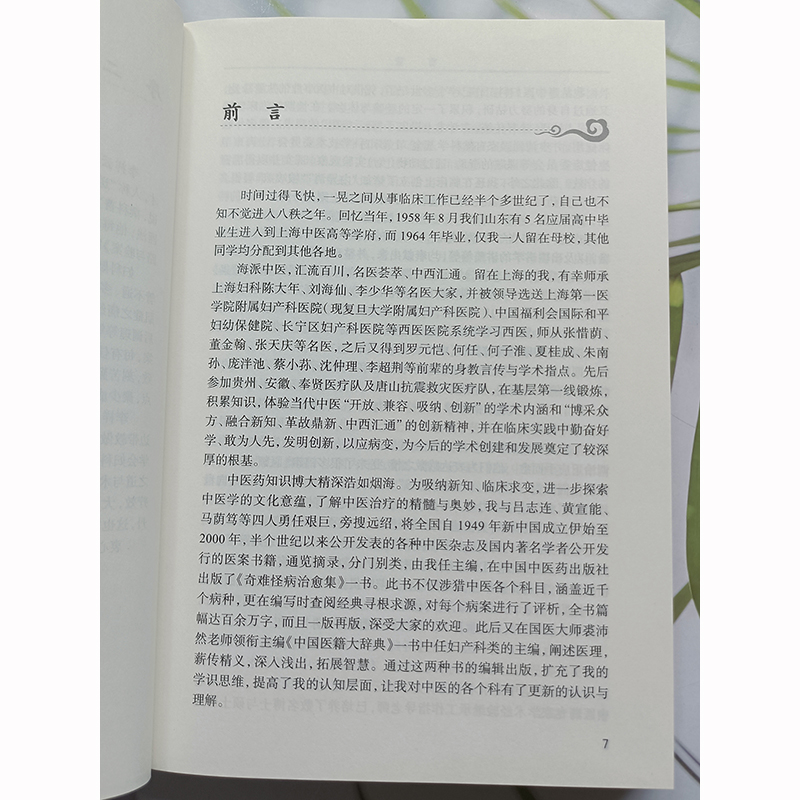 前 言
时间过得飞快，一晃之间从事临床工作已经半个多世纪了，自己也不
知不觉进入八秩之年。回忆当年，1958 年 8 月我们山东有 5 名应届高中毕
业生进入到上海中医高等学府，而 1964 年毕业，仅我一人留在母校，其他
同学均分配到其他各地。
海派中医，汇流百川，名医荟萃、中西汇通。留在上海的我，有幸师承
上海妇科陈大年、刘海仙、李少华等名医大家，并被领导选送上海第一医
学院附属妇产科医院（现复旦大学附属妇产科医院）、中国福利会国际和平
妇幼保健院、长宁区妇产科医院等西医医院系统学习西医，师从张惜荫、
董金翰、张天庆等名医，之后又得到罗元恺、何任、何子淮、夏桂成、朱南
孙、庞泮池、蔡小荪、沈仲理、李超荆等前辈的身教言传与学术指点。先后
参加贵州、安徽、奉贤医疗队及唐山抗震救灾医疗队，在基层第一线锻炼，
积累知识，体验当代中医“开放、兼容、吸纳、创新”的学术内涵和“博采众
方、融合新知、革故鼎新、中西汇通”的创新精神，并在临床实践中勤奋好
学、敢为人先，发明创新，以应病变，为今后的学术创建和发展奠定了较深
厚的根基。
中医药知识博大精深浩如烟海。为吸纳新知、临床求变，进一步探索
中医学的文化意蕴，了解中医治疗的精髓与奥妙，我与吕志连、黄宣能、
马荫笃等四人勇任艰巨，旁搜远绍，将全国自 1949 年新中国成立伊始至
2000 年，半个世纪以来公开发表的各种中医杂志及国内著名学者公开发
行的医案书籍，通览摘录，分门别类，由我任主编，在中国中医药出版社
出版了《奇难怪病治愈集》一书。此书不仅涉猎中医各个科目，涵盖近千
个病种，更在编写时查阅经典寻根求源，对每个病案进行了评析，全书篇
幅达百余万字，而且一版再版，深受大家的欢迎。此后又在国医大师裘沛
然老师领衔主编《中国医籍大辞典》一书中任妇产科类的主编，阐述医理，
薪传精义，深入浅出，拓展智慧。通过这两种书的编辑出版，扩充了我的
学识思维，提高了我的认知层面，让我对中医的各个科有了更新的认识与
理解。
7